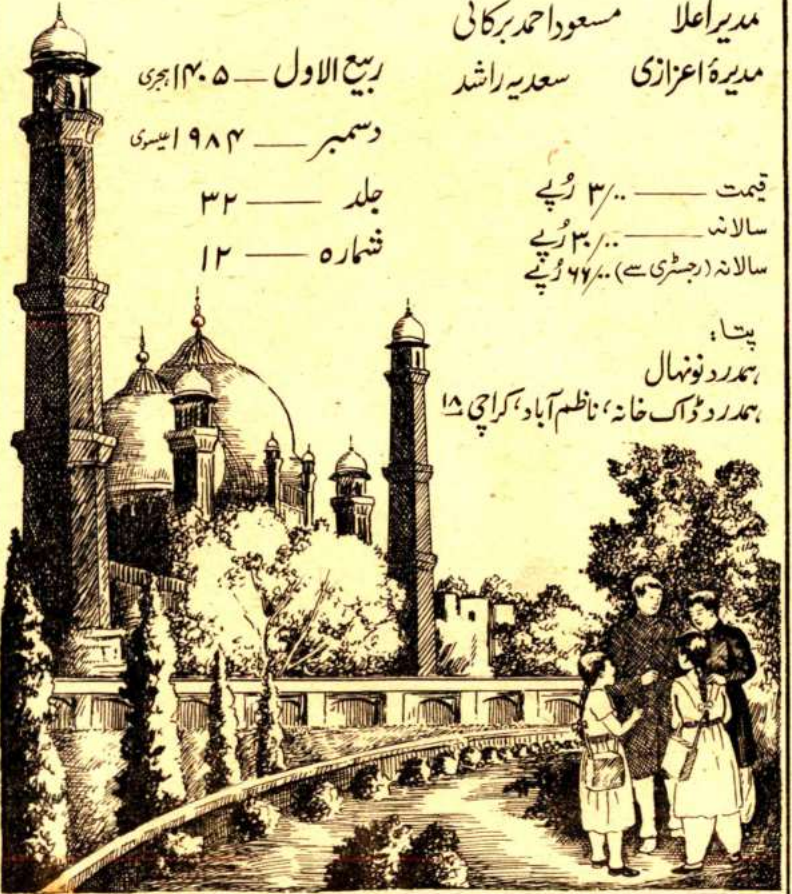 مدیر اعلا مسعود احمد برکاتی
مدیرۂ اعزازی سعدیہ راشد
ربیع الاول — ۱۴۰۵ ہجری
دسمبر — ۱۹۸۴ عیسوی
جلد — ۳۲
شمارہ — ۱۲
قیمت — ۳/۰۰ رُپے
سالانہ — ۳۰/۰۰ رُپے
سالانہ (رجسٹری سے) ۶۶/۰۰ رُپے
پتا:
ہمدرد نونہال
ہمدرد ڈاک خانہ، ناظم آباد، کراچی ۱۸